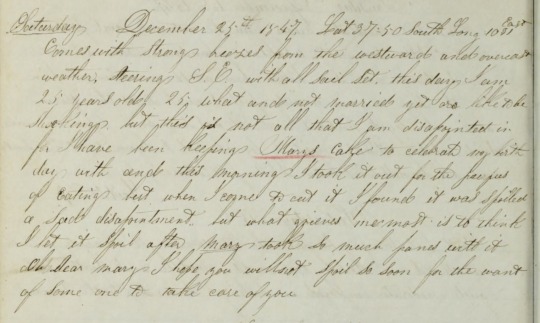 Saturday December 25th 1847. Lat 37-50 South Long 101 East
Comes with strong breezes from the westward and overcast
weather, steering S.E. with all sail set. this day I am
25 years old, 25, what and not married yet are like to be
but this is not all that I am disapointed in
for I have been keeping Marys Cake to celebrate my birth
day with and this morning I took it out for the purpus
of eating but when I come to cut it I found it was spoiled
a sad disapointment. but what grieves me most is to think
I let it spoil after mary took so much panes with it
dear mary I hope you will not spoil so soon for the want
of some one to take care of you